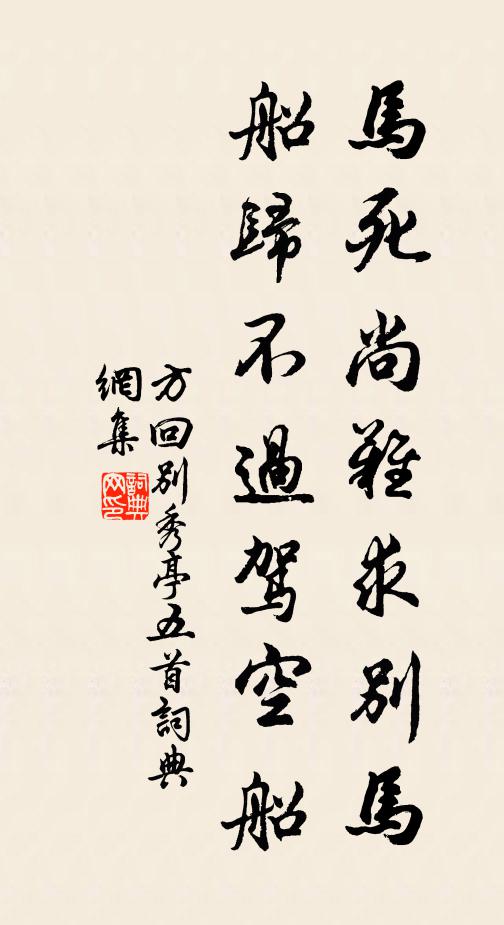 馬死尚難求別馬
船歸不過駕空船
方回別秀亭五首詞典
網集
詞典
网印